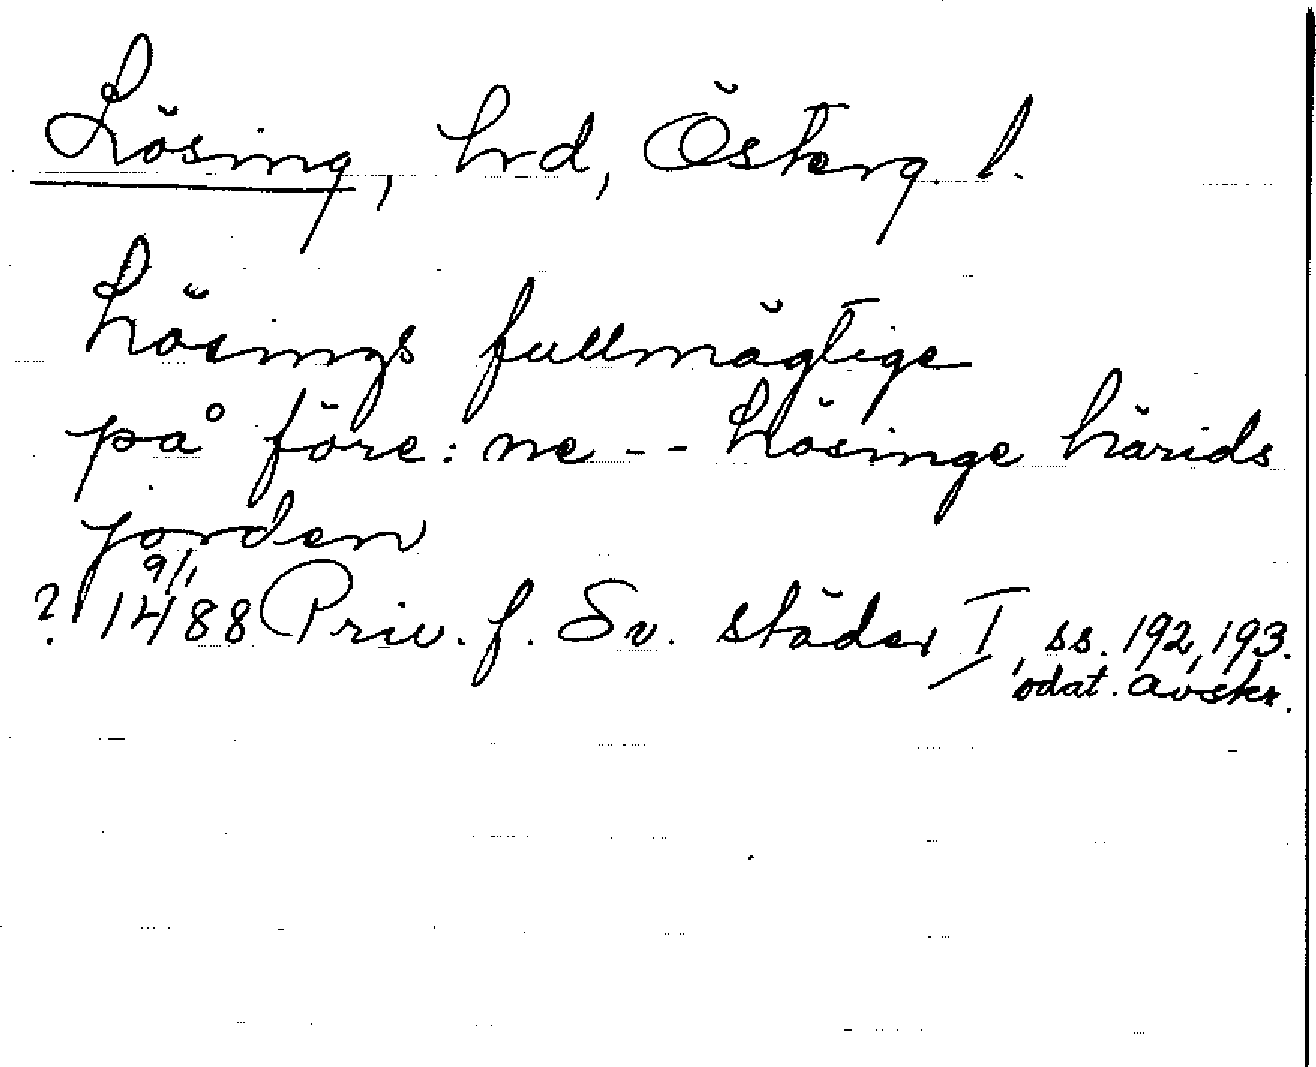 Lösing, hrd, Österg. l.
Lösings fullmägtige
på före: ne -- Lösinge härids
jorden
? 9/1 1488 Priv. f. Sv. städer I, ss. 192, 193.
odat. avskr.